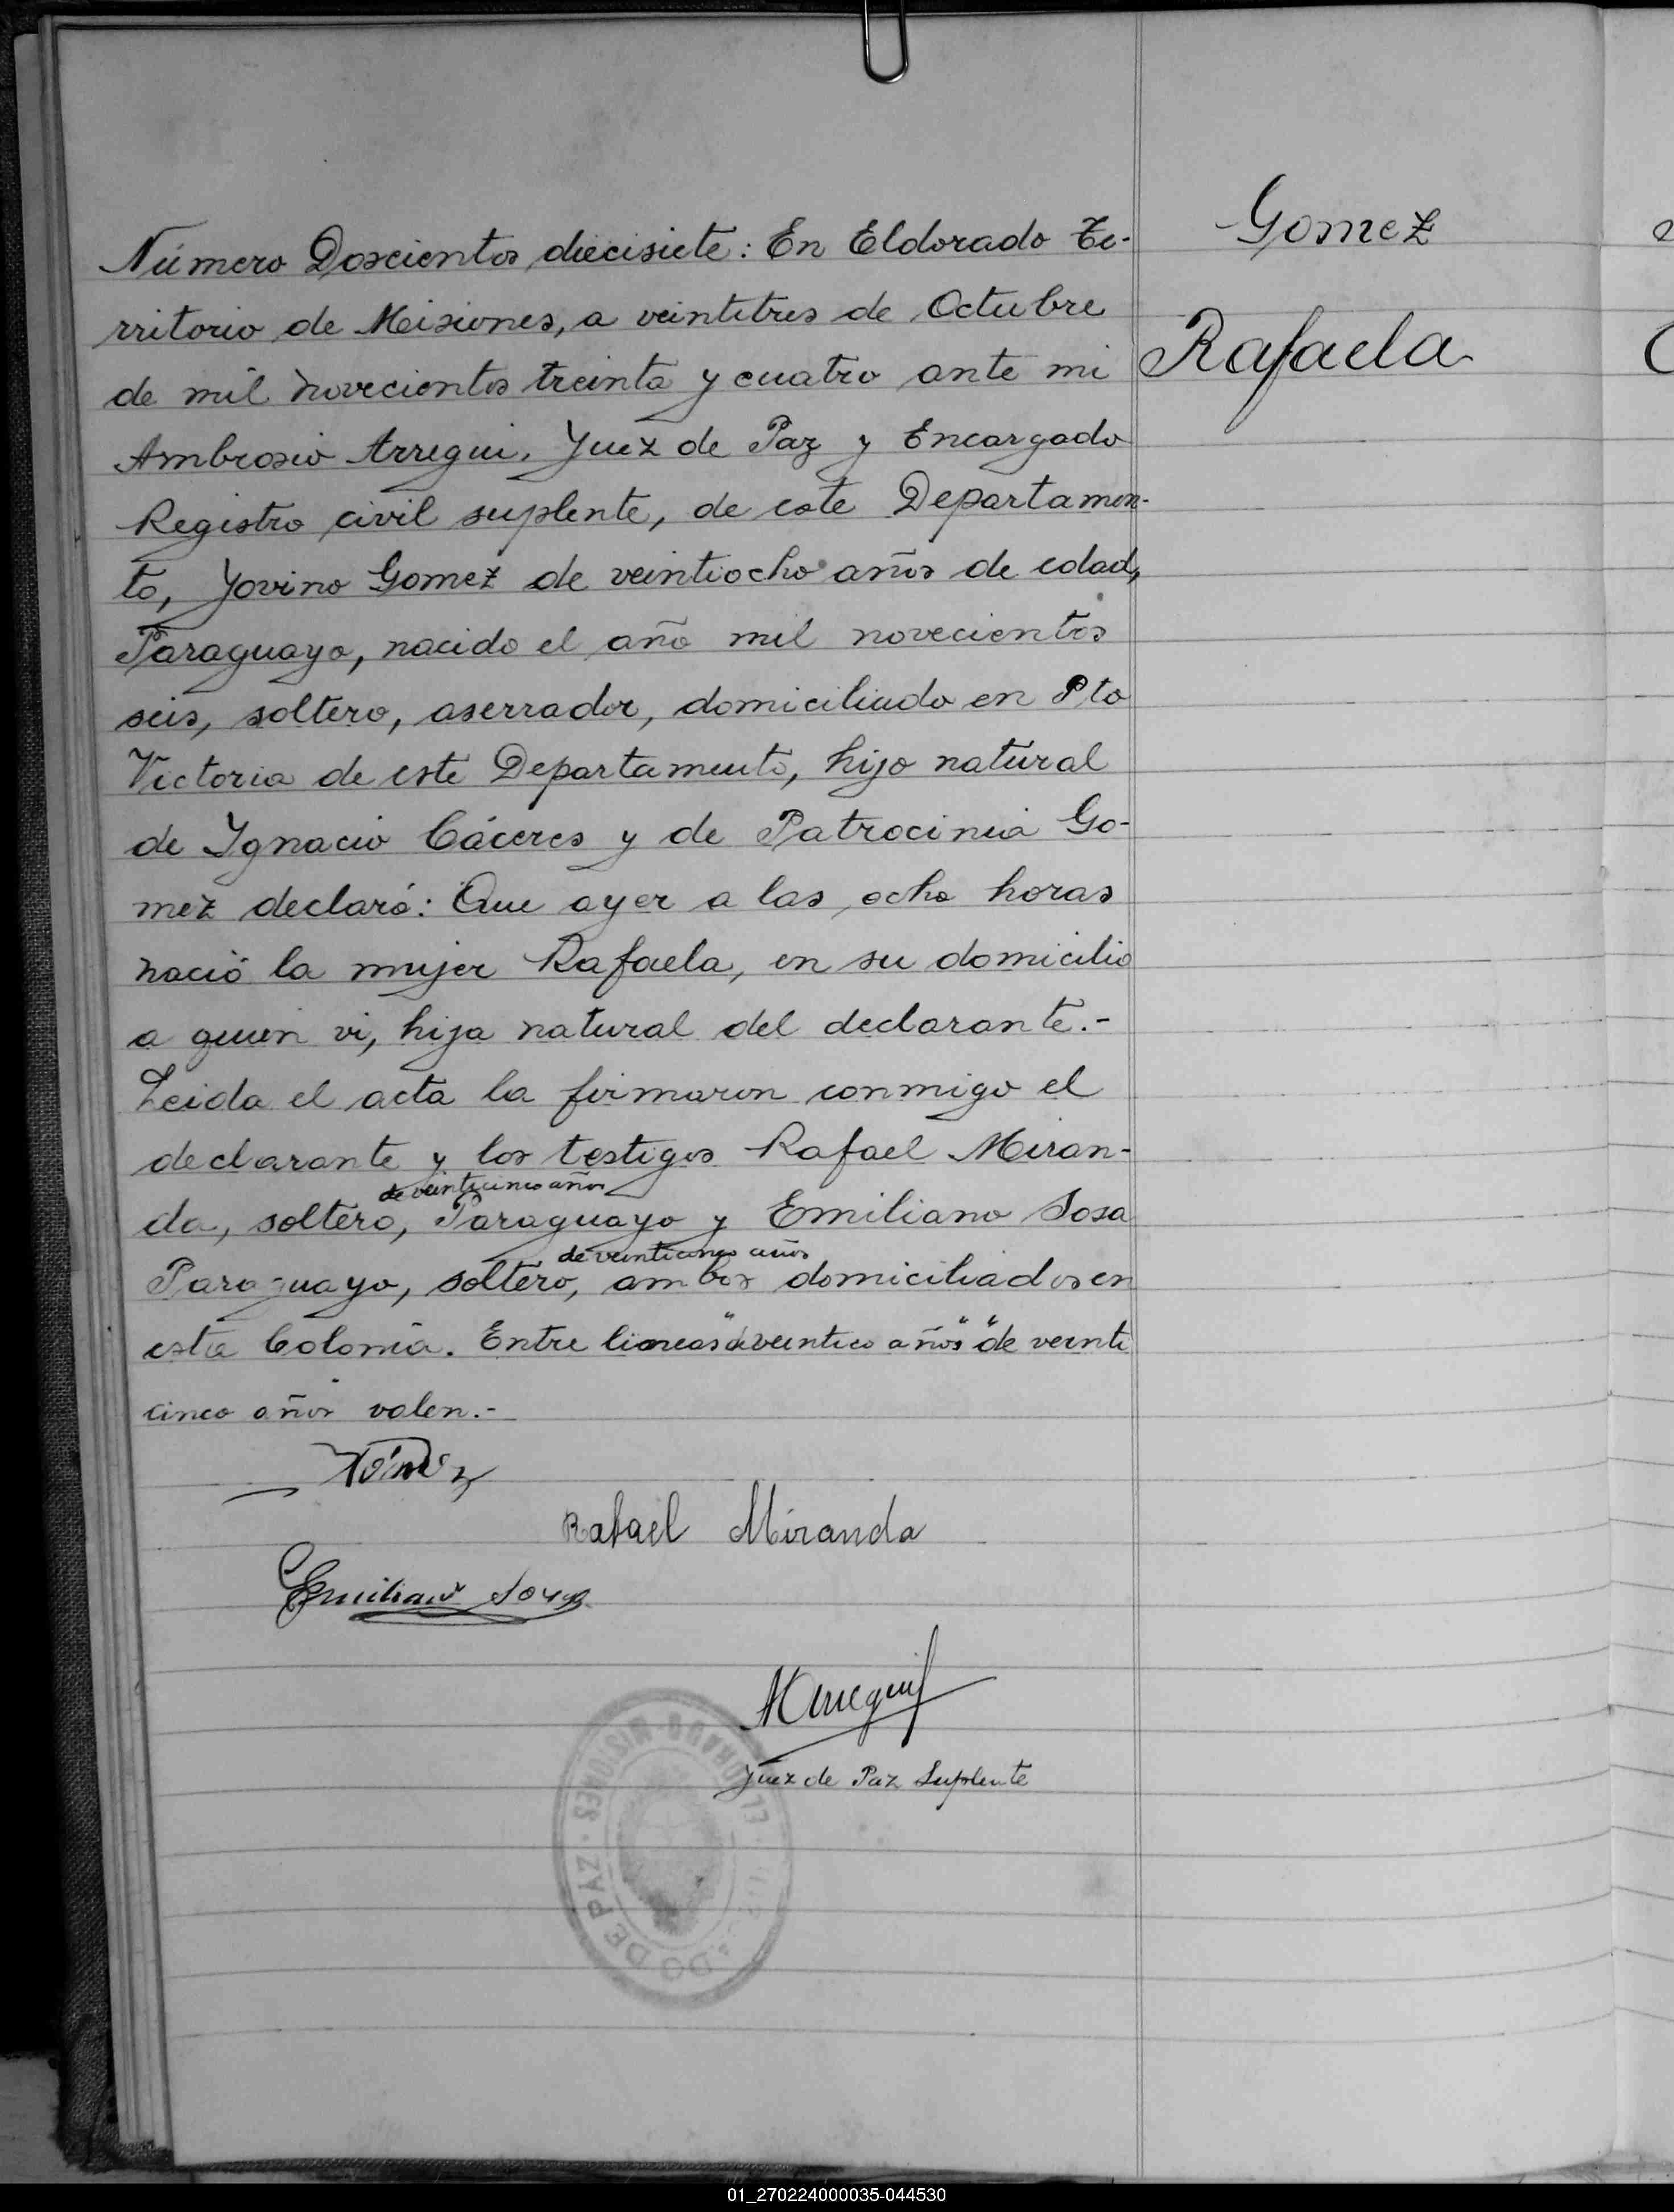 Gomez
Rafaela
Número Doscientos diecisiete: En Eldorado Te-
rritorio de Misiones, a veintitres de Octubre
de mil novecientos treinta y cuatro ante mi
Ambrosio Arregui, Juez de Paz y Encargado
Registro civil suplente, de este Departamen-
to, Jovino Gomez de veintiocho años de edad,
Paraguayo, nacido el año mil novecientos
seis, soltero, aserrador, domiciliado en Pto
Victoria de este Departamento, hijo natural
de Ignacio Cáceres y de Patrocinia Go-
mez declaró: Que ayer a las ocho horas
nació la mujer Rafaela, en su domicilio
a quien vi, hija natural del declarante.-
Leida el acta la firmaron conmigo el
declarante y los testigos Rafael Miran-
de veinticinco años
da, soltero, Paraguayo y Emiliano Sosa
de veinticinco años
Paraguayo, soltero, ambos domiciliados en
esta Colonia. Entre lineas "de veintico años" "de veinti
cinco años valen.-
Rafael Miranda
Emiliano Sosa
Arregui
Juez de Paz Suplente
DO DE PAZ · ELDORADO MISIONES
01_270224000035-044530